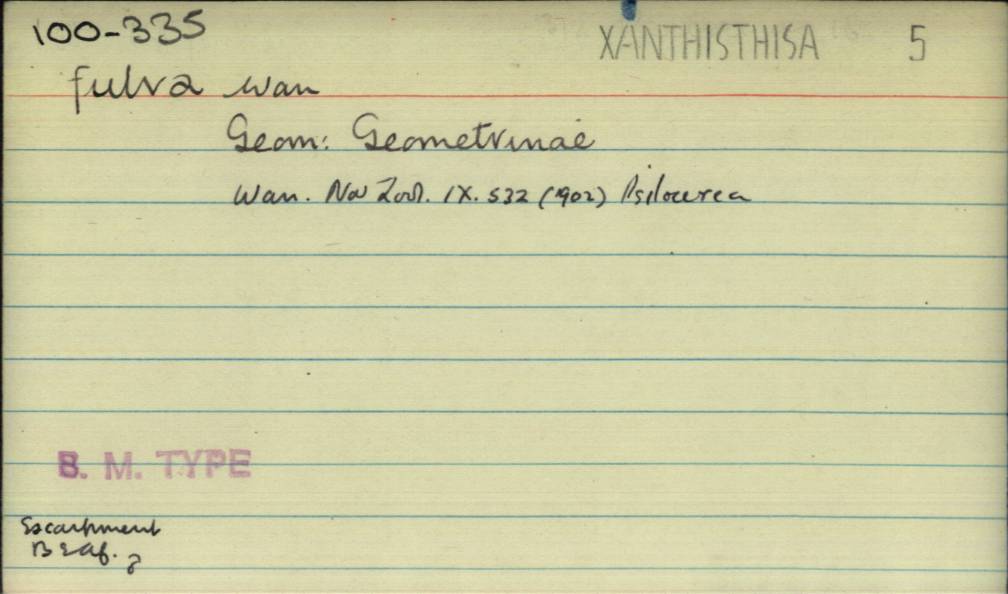 100-335
XANTHISTHISA 5
fulva Warr
Geom: Geometrinae
Warr. Nov Zool. IX. 532 (1902) Psilocerea
B. M. TYPE
Escarpment
B E Af. ♂